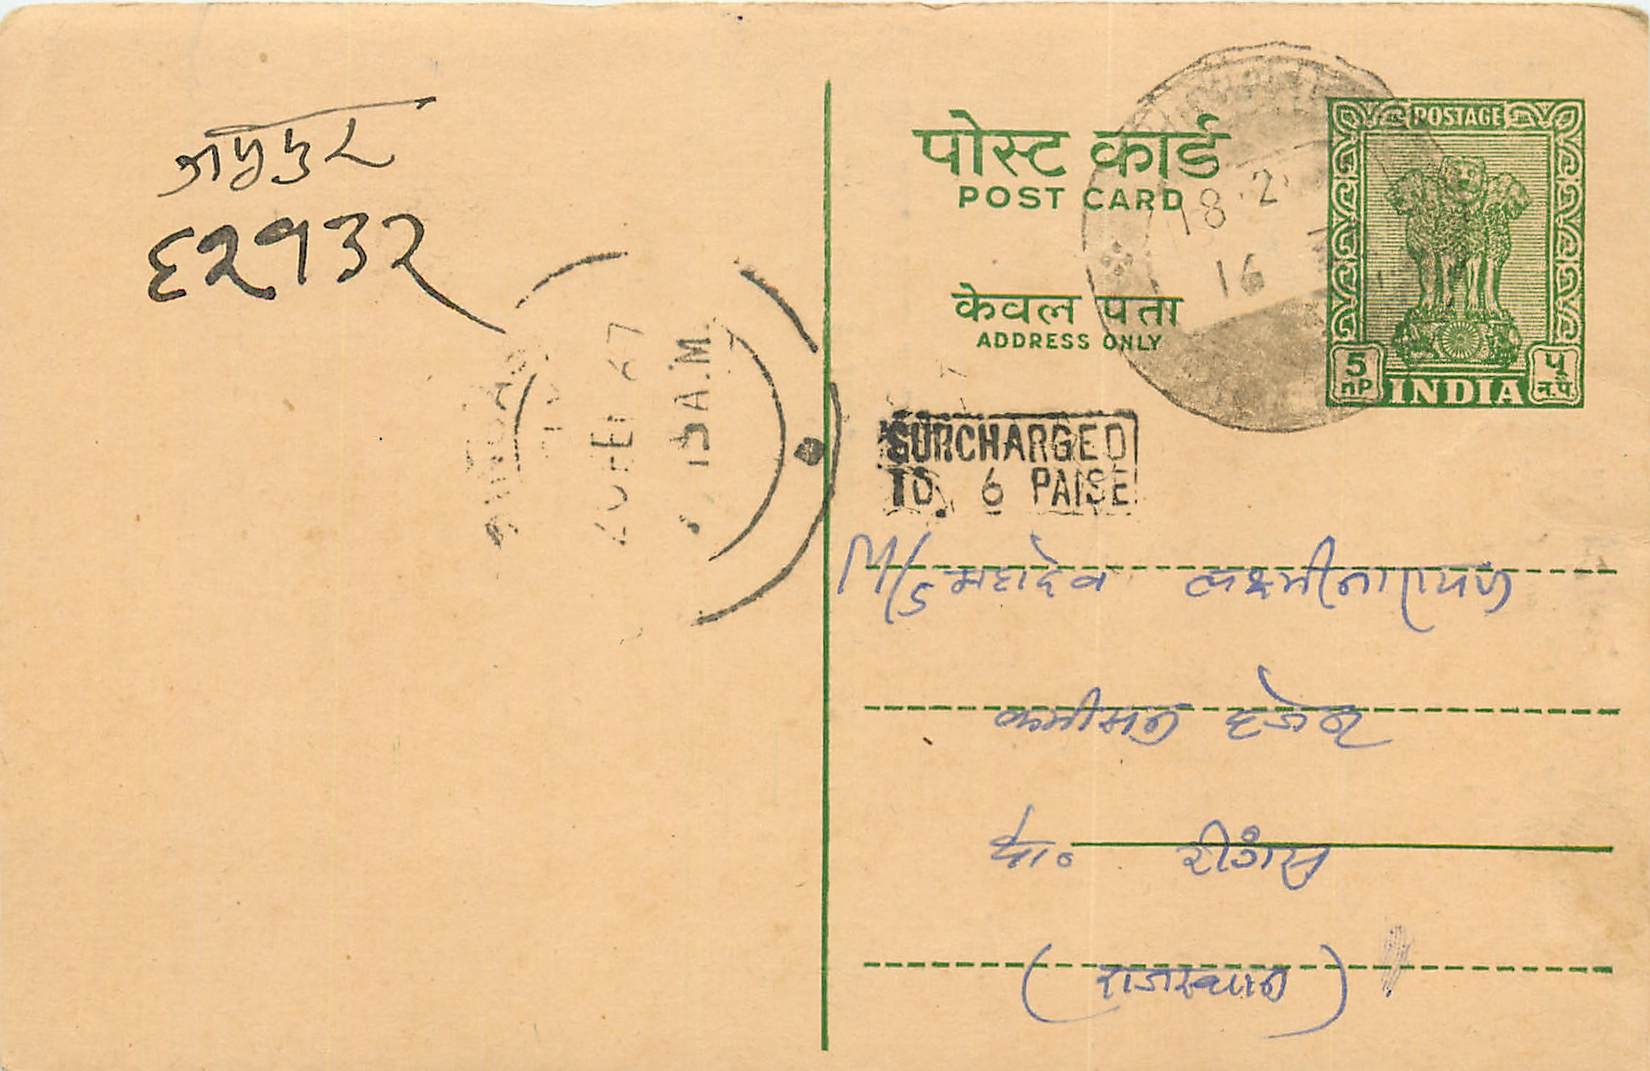 जयपुर
६२९७३२
पोस्ट कार्ड
POST CARD
केवल पता
ADDRESS ONLY
POSTAGE
5 nP
INDIA
५ न.पै.
18.2.
16
20 FEB 67
A.M.
SURCHARGED
TO. 6 PAISE
M/S महादेव लक्ष्मीनारायण
कमीसन एजेन्ट
पो० रींगस
(राजस्थान)